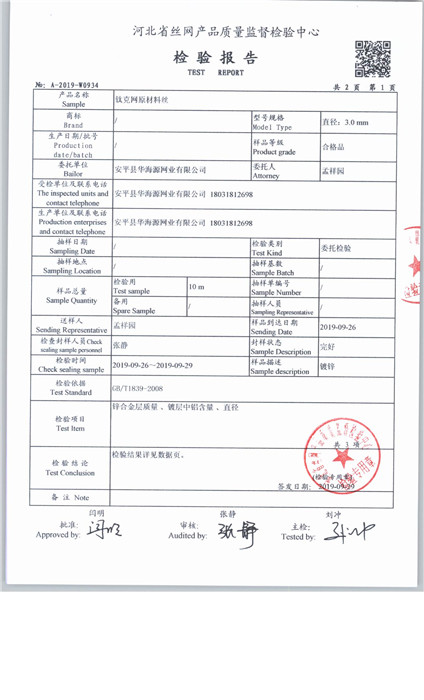 河北省丝网产品质量监督检验中心
检验报告
TEST REPORT
№: A-2019-W0934 共 2 页 第 1 页
产品名称 Sample 钛克网原材料丝
商标 Brand / 型号规格 Model Type 直径: 3.0 mm
生产日期/批号 Production date/batch / 样品等级 Product grade 合格品
委托单位 Bailor 安平县华海源网业有限公司 委托人 Attorney 孟祥园
受检单位及联系电话 The inspected units and contact telephone 安平县华海源网业有限公司 18031812698
生产单位及联系电话 Production enterprises and contact telephone 安平县华海源网业有限公司 18031812698
抽样日期 Sampling Date / 检验类别 Test Kind 委托检验
抽样地点 Sampling Location / 抽样基数 Sample Batch /
样品总量 Sample Quantity 检验用 Test sample 10 m 抽样单编号 Sample Number /
备用 Spare Sample / 抽样人员 Sampling Representative /
送样人 Sending Representative 孟祥园 样品到达日期 Sending Date 2019-09-26
检查封样人员Check sealing sample personnel 张静 封样状态 Sample Description 完好
检验时间 Check sealing sample 2019-09-26～2019-09-29 样品描述 Sample description 镀锌
检验依据 Test Standard GB/T1839-2008
检验项目 Test Item 锌合金层质量 、镀层中铝含量 、直径
共 3 项
检验结论 Test Conclusion 检验结果详见数据页。
(检验专用章)
签发日期: 2019-09-29
备 注 Note
闫明 张静 刘冲
批准: Approved by: 审核: Audited by: 张静 主检: Tested by: